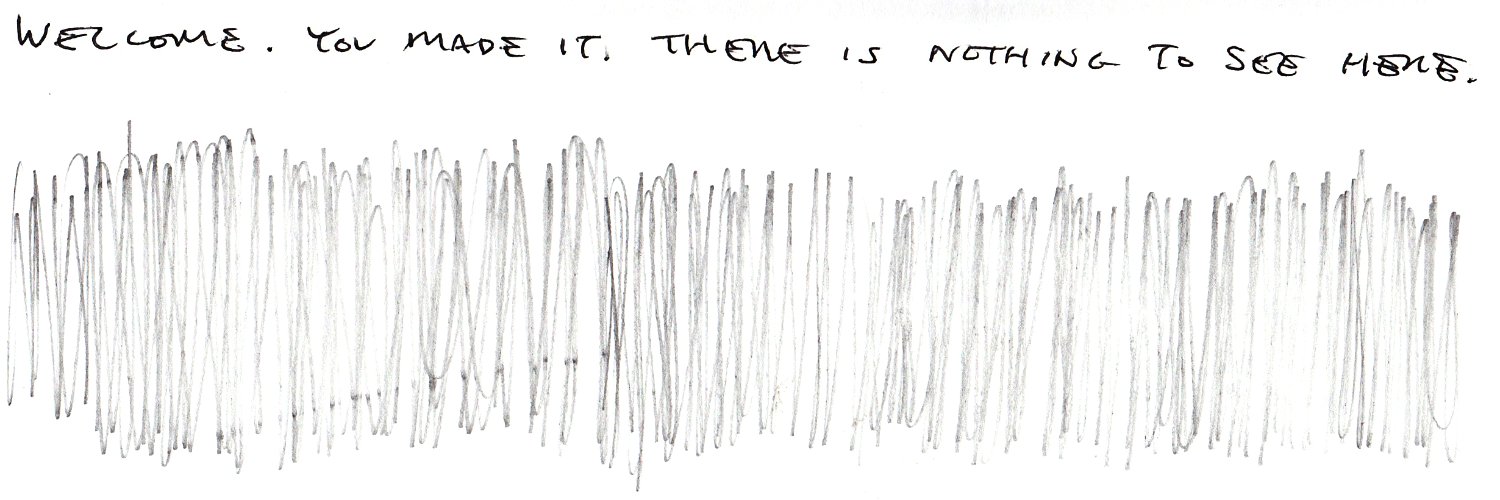 WELCOME. YOU MADE IT. THERE IS NOTHING TO SEE HERE.